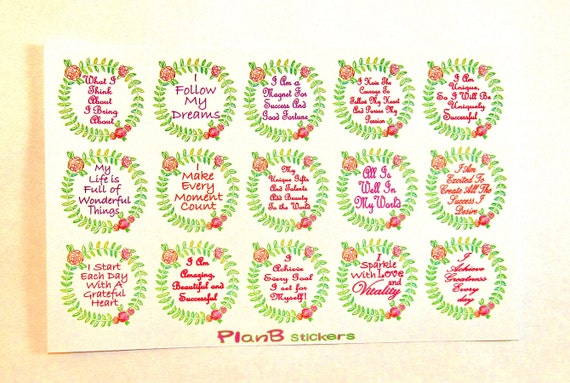 What I
Think
About
I Bring
About
I
Follow
My
Dreams
I Am a
Magnet For
Success And
Good Fortune
I Have The
Courage To
Follow My Heart
And Pursue My
Passion
I Am
Unique,
So I Will Be
Uniquely
Successful
My
Life is
Full of
Wonderful
Things
I
Make
Every
Moment
Count
My
Unique Gifts
And Talents
Add Beauty
To the World
All Is
Well In
My World
I Am
Excited To
Create All The
Success I
Desire
I Start
Each Day
With A
Grateful
Heart
I Am
Amazing,
Beautiful and
Successful
I
Achieve
Every Goal
I set for
Myself!
Sparkle
With Love
and
Vitality
I
Achieve
Greatness
Every
day
PlanB Stickers